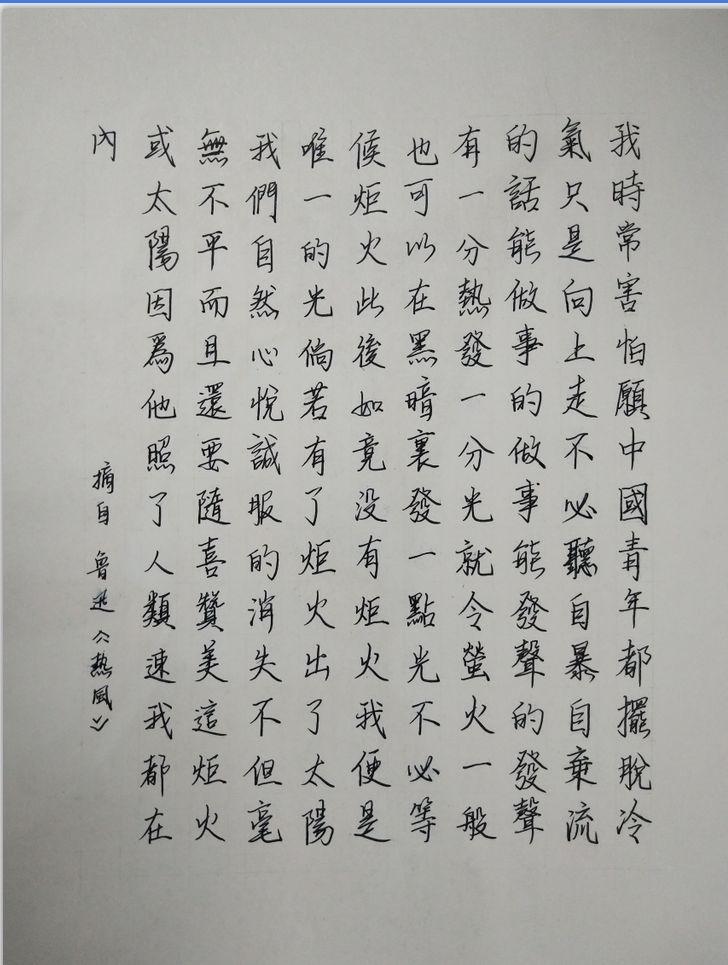 我時常害怕願中國青年都擺脫冷
氣只是向上走不必聽自暴自棄流
的話能做事的做事能發聲的發聲
有一分熱發一分光就令螢火一般
也可以在黑暗裏發一點光不必等
候炬火此後如竟没有炬火我便是
唯一的光倘若有了炬火出了太陽
我們自然心悅誠服的消失不但毫
無不平而且還要隨喜贊美這炬火
或太陽因爲他照了人類連我都在
內
摘自魯迅《热風》